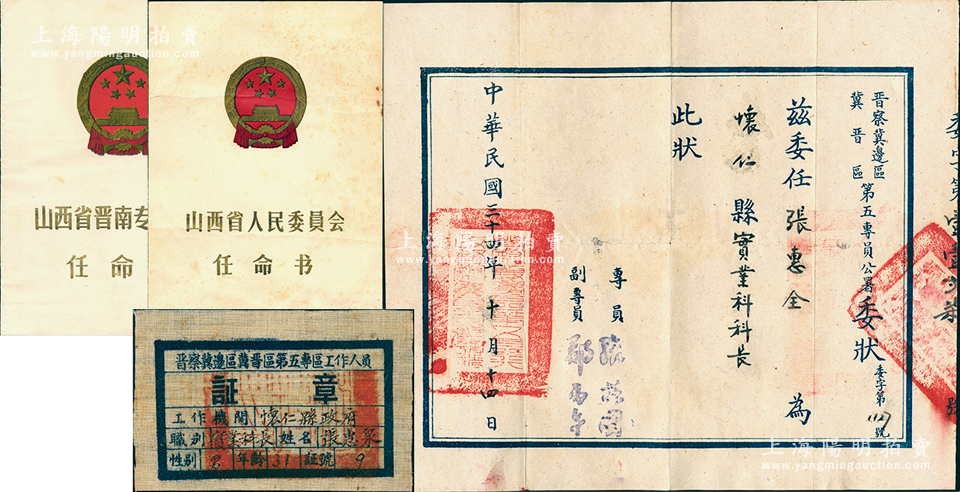 上海陽明拍賣
www.yangmingauction.com
山西省晋南专
任命
上海陽明拍賣
www.yangmingauction.com
山西省人民委員会
任命书
晉察冀邊區冀晉區第五專區工作人員
証章
工作機關 懷仁縣政府
職別 實業科長 姓名 張惠泉
性別 男 年齡 31 証號 9
晉察冀邊區
冀晉區
第五專員公署
委狀
委字第 號
茲委任張惠全為
懷仁縣實業科科長
此狀
專員
副專員
中華民國三十四年十月十四日
號
上海陽明拍賣
www.yangmingauction.com
上海陽明拍賣
www.yangmingauction.com